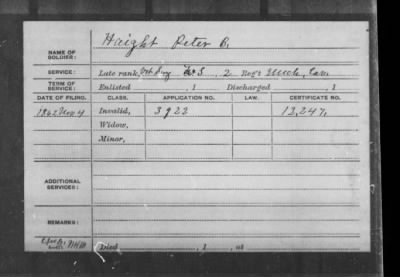 NAME OF SOLDIER: Haight Peter B.
SERVICE: Late rank, Vet Surg F & S, 2 Reg't Mich. Cav.
TERM OF SERVICE: Enlisted , 1 Discharged , 1
DATE OF FILING. CLASS. APPLICATION NO. LAW. CERTIFICATE NO.
1862 Nov 4 Invalid, 3922 13,247,
Widow,
Minor,
ADDITIONAL SERVICES:
REMARKS:
Died , 1 , at